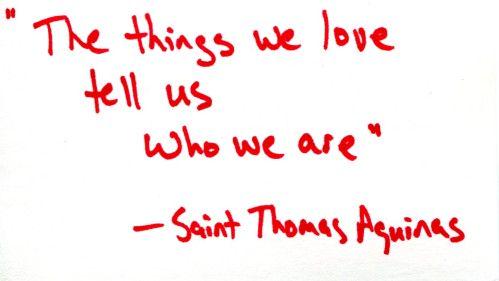 "The things we love
tell us
who we are"
— Saint Thomas Aquinas